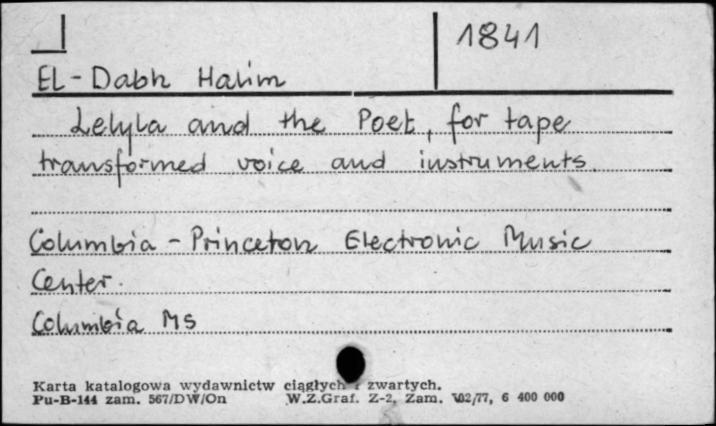 1841
El-Dabh Halim
Lelyla and the Poet, for tape
transformed voice and instruments.
Columbia - Princeton Electronic Music
Center.
Columbia MS
Karta katalogowa wydawnictw ciągłych i zwartych.
Pu-B-144 zam. 567/DW/On W.Z.Graf. Z-2, Zam. 102/77, 6 400 000